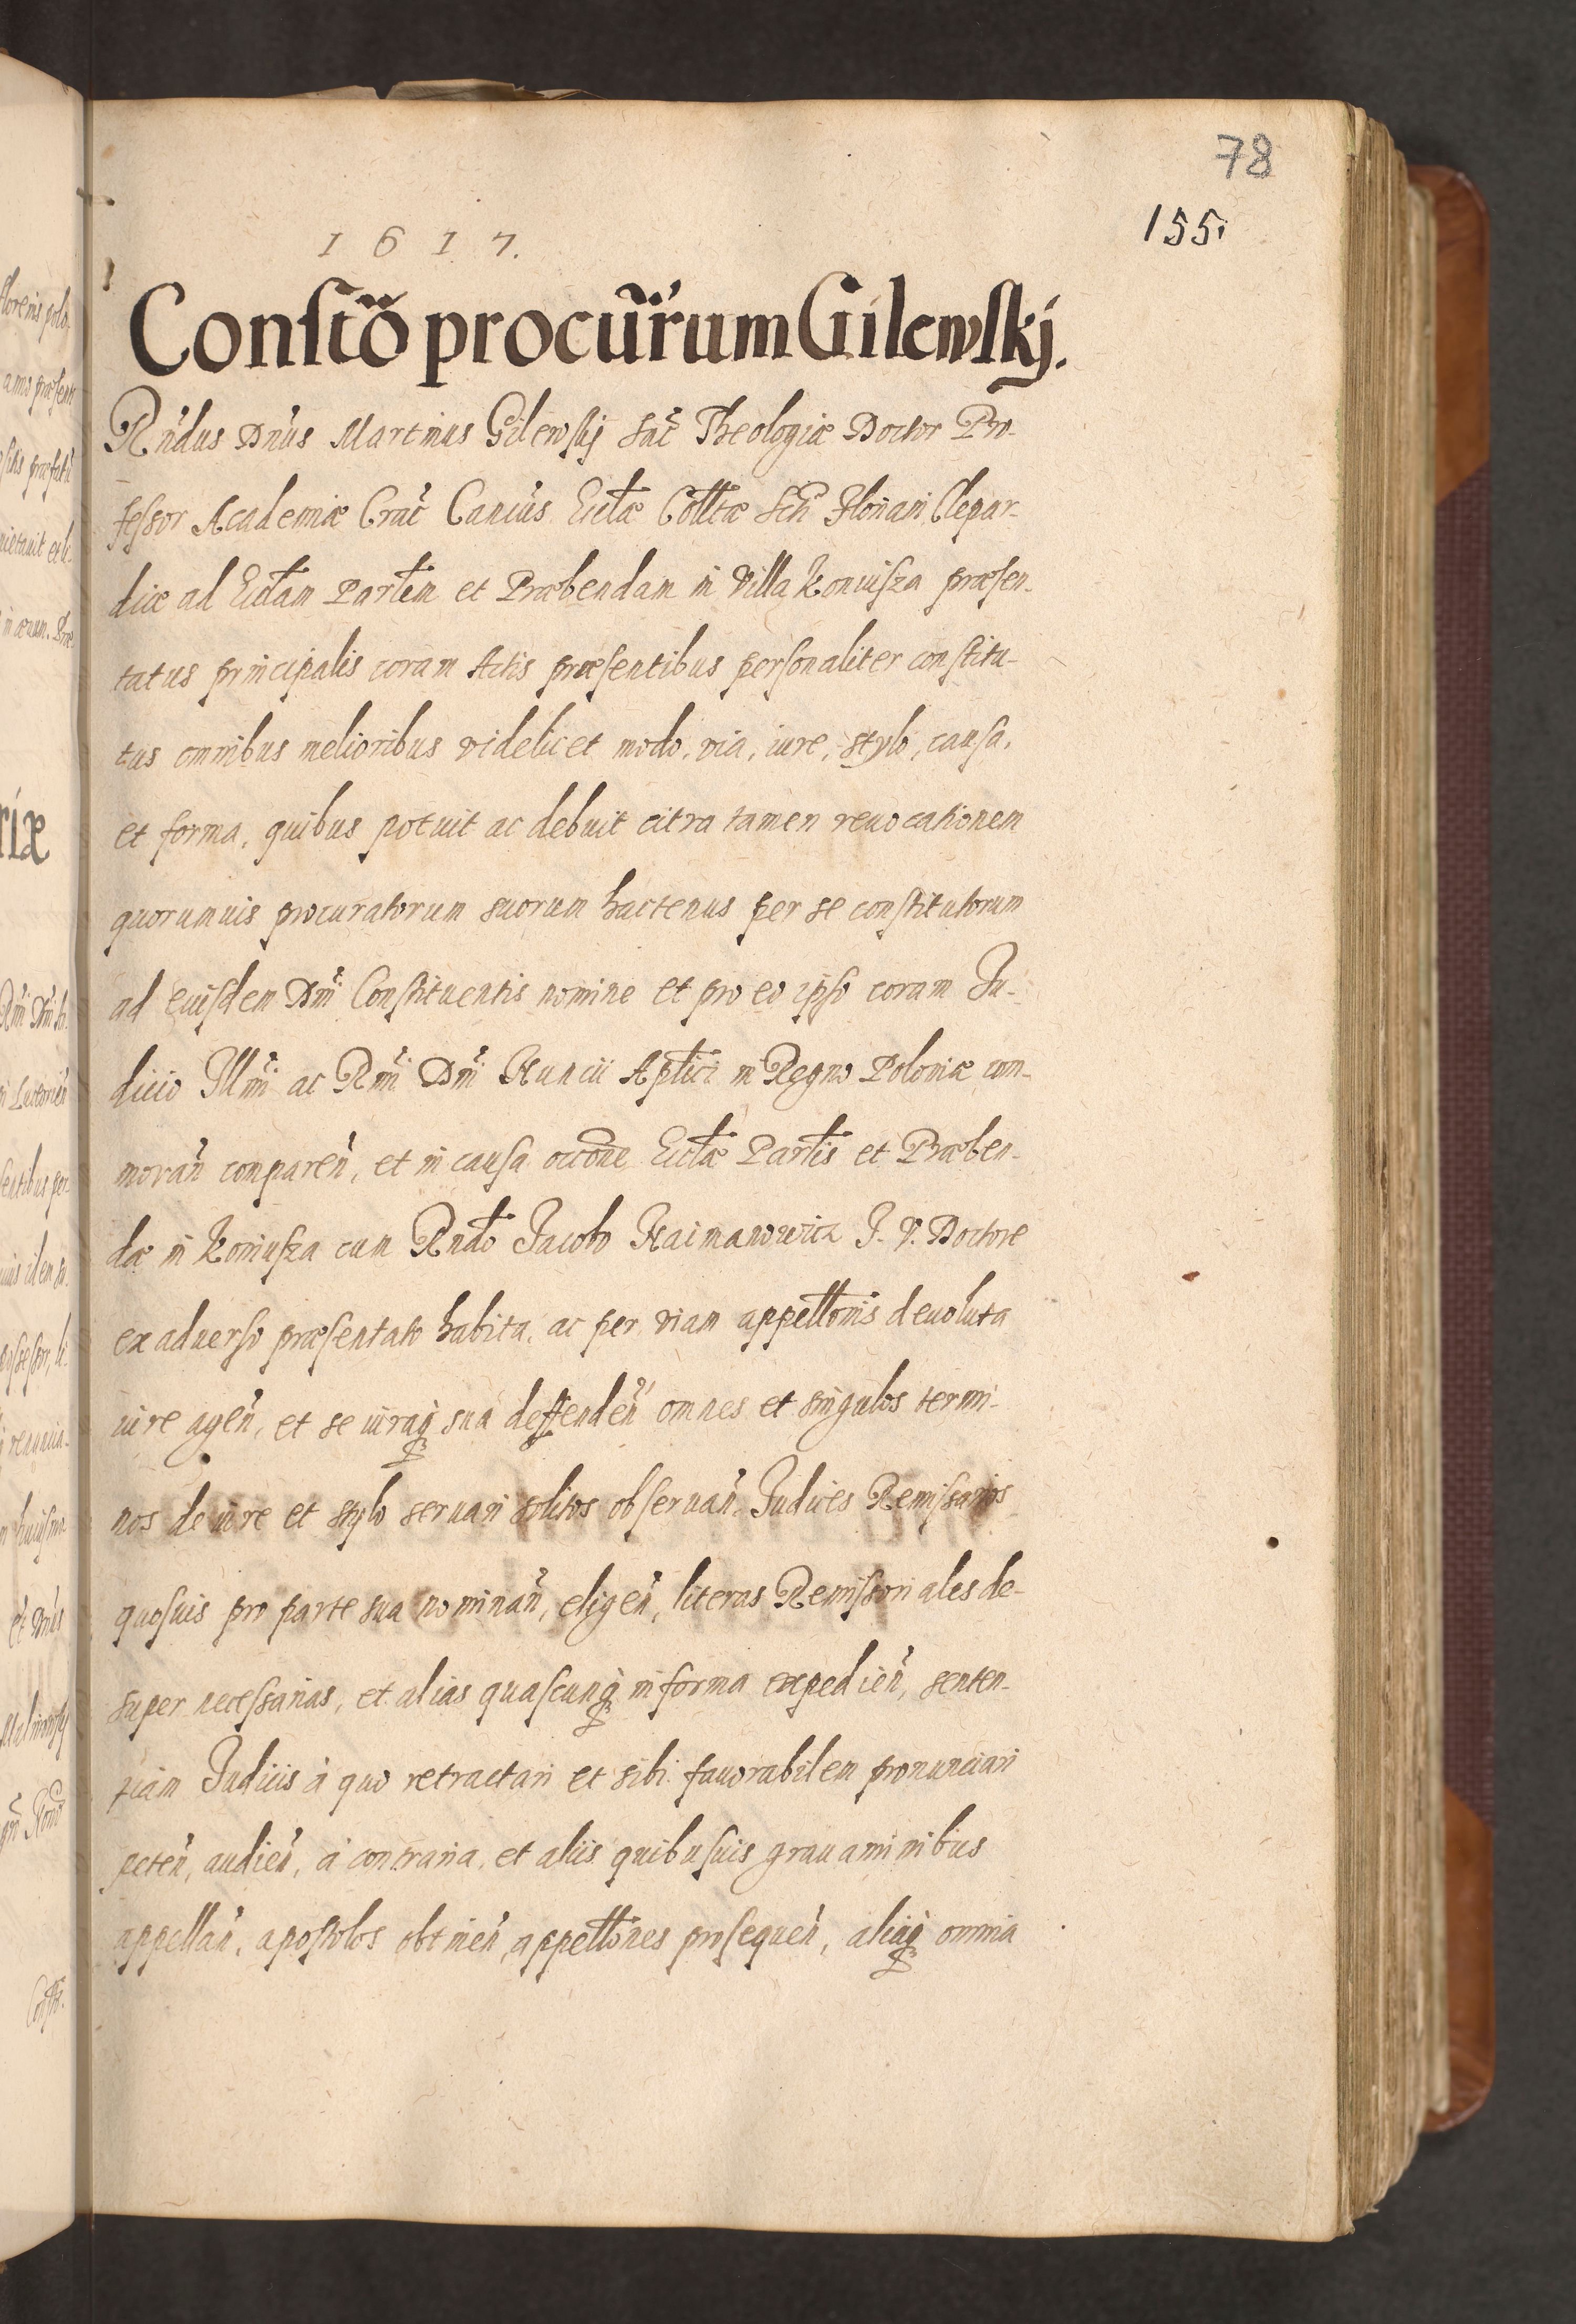 78
155.
1617.
Constõ procur̃um Gilewskj.
Rñdus Dñus Martinus Gilewskj Sac̃ Theologiæ Doctor Pro-
fessor Academiæ Crac̃ Canc̃us Ecclæ Colltæ Scti Floriani Clepar-
diæ ad Ecclam Parlem et Præbendam in Villa Koniusza præsen-
tatus principalis coram Actis præsentibus personaliter constitu-
tus omnibus melioribus videlicet modo, via, iure, stylo, causa,
et forma, quibus potuit ac debuit citra tamen reuocationem
quorumuis procuratorum suorum hactenus per se constitutorum
ad euisdem Dñi Constituentis nomine et pro eo ipso coram Ju-
dicio Illm̃i ac Rm̃i Dñi Nuncii Aplici in Regno Poloniæ com-
moran̄ comparen̄, et in causa occõne Ecclæ Parlis et Præben-
dæ in Koniusza cum Rndo Jacobo Naimanowicz J. V. Doctore
ex aduerso præsentato habita, ac per viam appellõnis deuoluta
iure agen̄, et se iuraq̃ sua deffenden̄ omnes et singulos termi-
nos de iure et stylo seruari solitos obseruan̄ Judices Remissarios
quosuis pro parte sua nominan̄, eligen̄, literas Remissoriales de-
super necessarias, et alias quascunq̃ in forma expedien̄, senten-
tiam Judicis à quo retractari et sibi fauorabilem pronunciari
peten̄, audien̄, à contraria, et aliis quibusuis grauaminibus
appellan̄, apostolos obtinen̄, appellõnes prosequen̄, aliaq̃ omnia